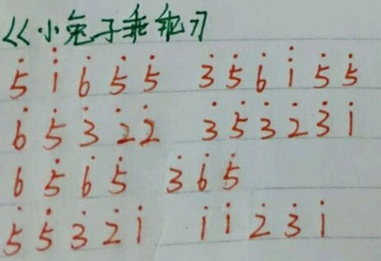 《小兔子乖乖》
5̇ 1̇ 6̇ 5̇ 5̇ 3̇ 5̇ 6̇ 1̇ 5̇ 5̇
6̇ 5̇ 3̇ 2̇ 2̇ 3̇ 5̇ 3̇ 2̇ 3̇ 1̇
6̇ 5̇ 6̇ 5̇ 3̇ 6̇ 5̇
5̇ 5̇ 3̇ 2̇ 1̇ 1̇ 1̇ 2̇ 3̇ 1̇